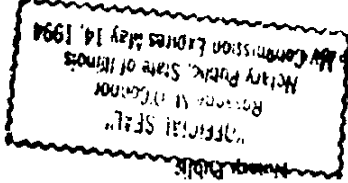 Notary Public
"OFFICIAL SEAL"
O'Connor
Notary Public, State of Illinois
My Commission Expires May 14, 1994